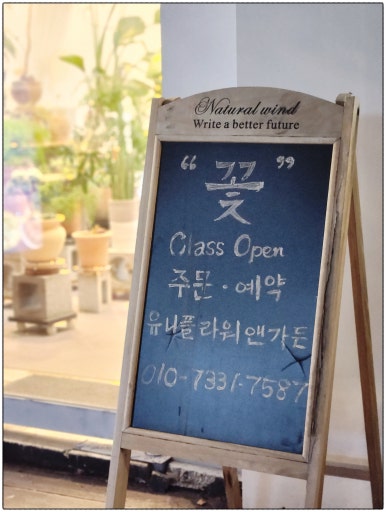 Natural wind
Write a better future
“꽃”
Class Open
주문·예약
유니플라워앤가든
010-7331-7587